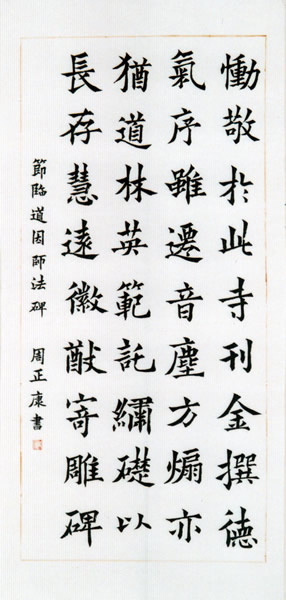 慟敬於此寺刊金撰德
氣序雖遷音塵方煽亦
猶道林英範託繡礎以
長存慧遠徽猷寄雕碑
節臨道因師法碑 周正康書